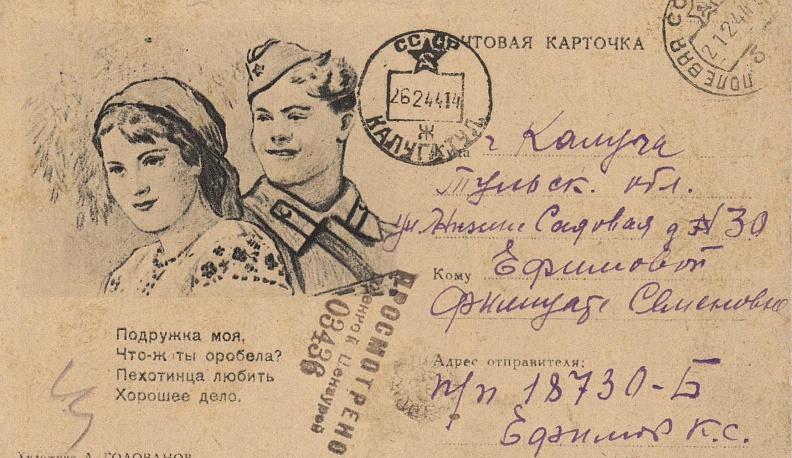 ПОЧТОВАЯ КАРТОЧКА
СССР
26244 14
Ж
КАЛУГА ТУЛ
ПОЛЕВАЯ
2 1 2 44
г Калуга
Тульск. обл.
ул. Нижне Садовая д № 30
Кому Ефимовой
Семеновне
Подружка моя,
Что-ж ты оробела?
Пехотинца любить
Хорошее дело.
ПРОСМОТРЕНО
Военной Цензурой
03436
Адрес отправителя:
п/п 18730-Б
Ефимов К.С.
Художник А. ГОЛОВАНОВ